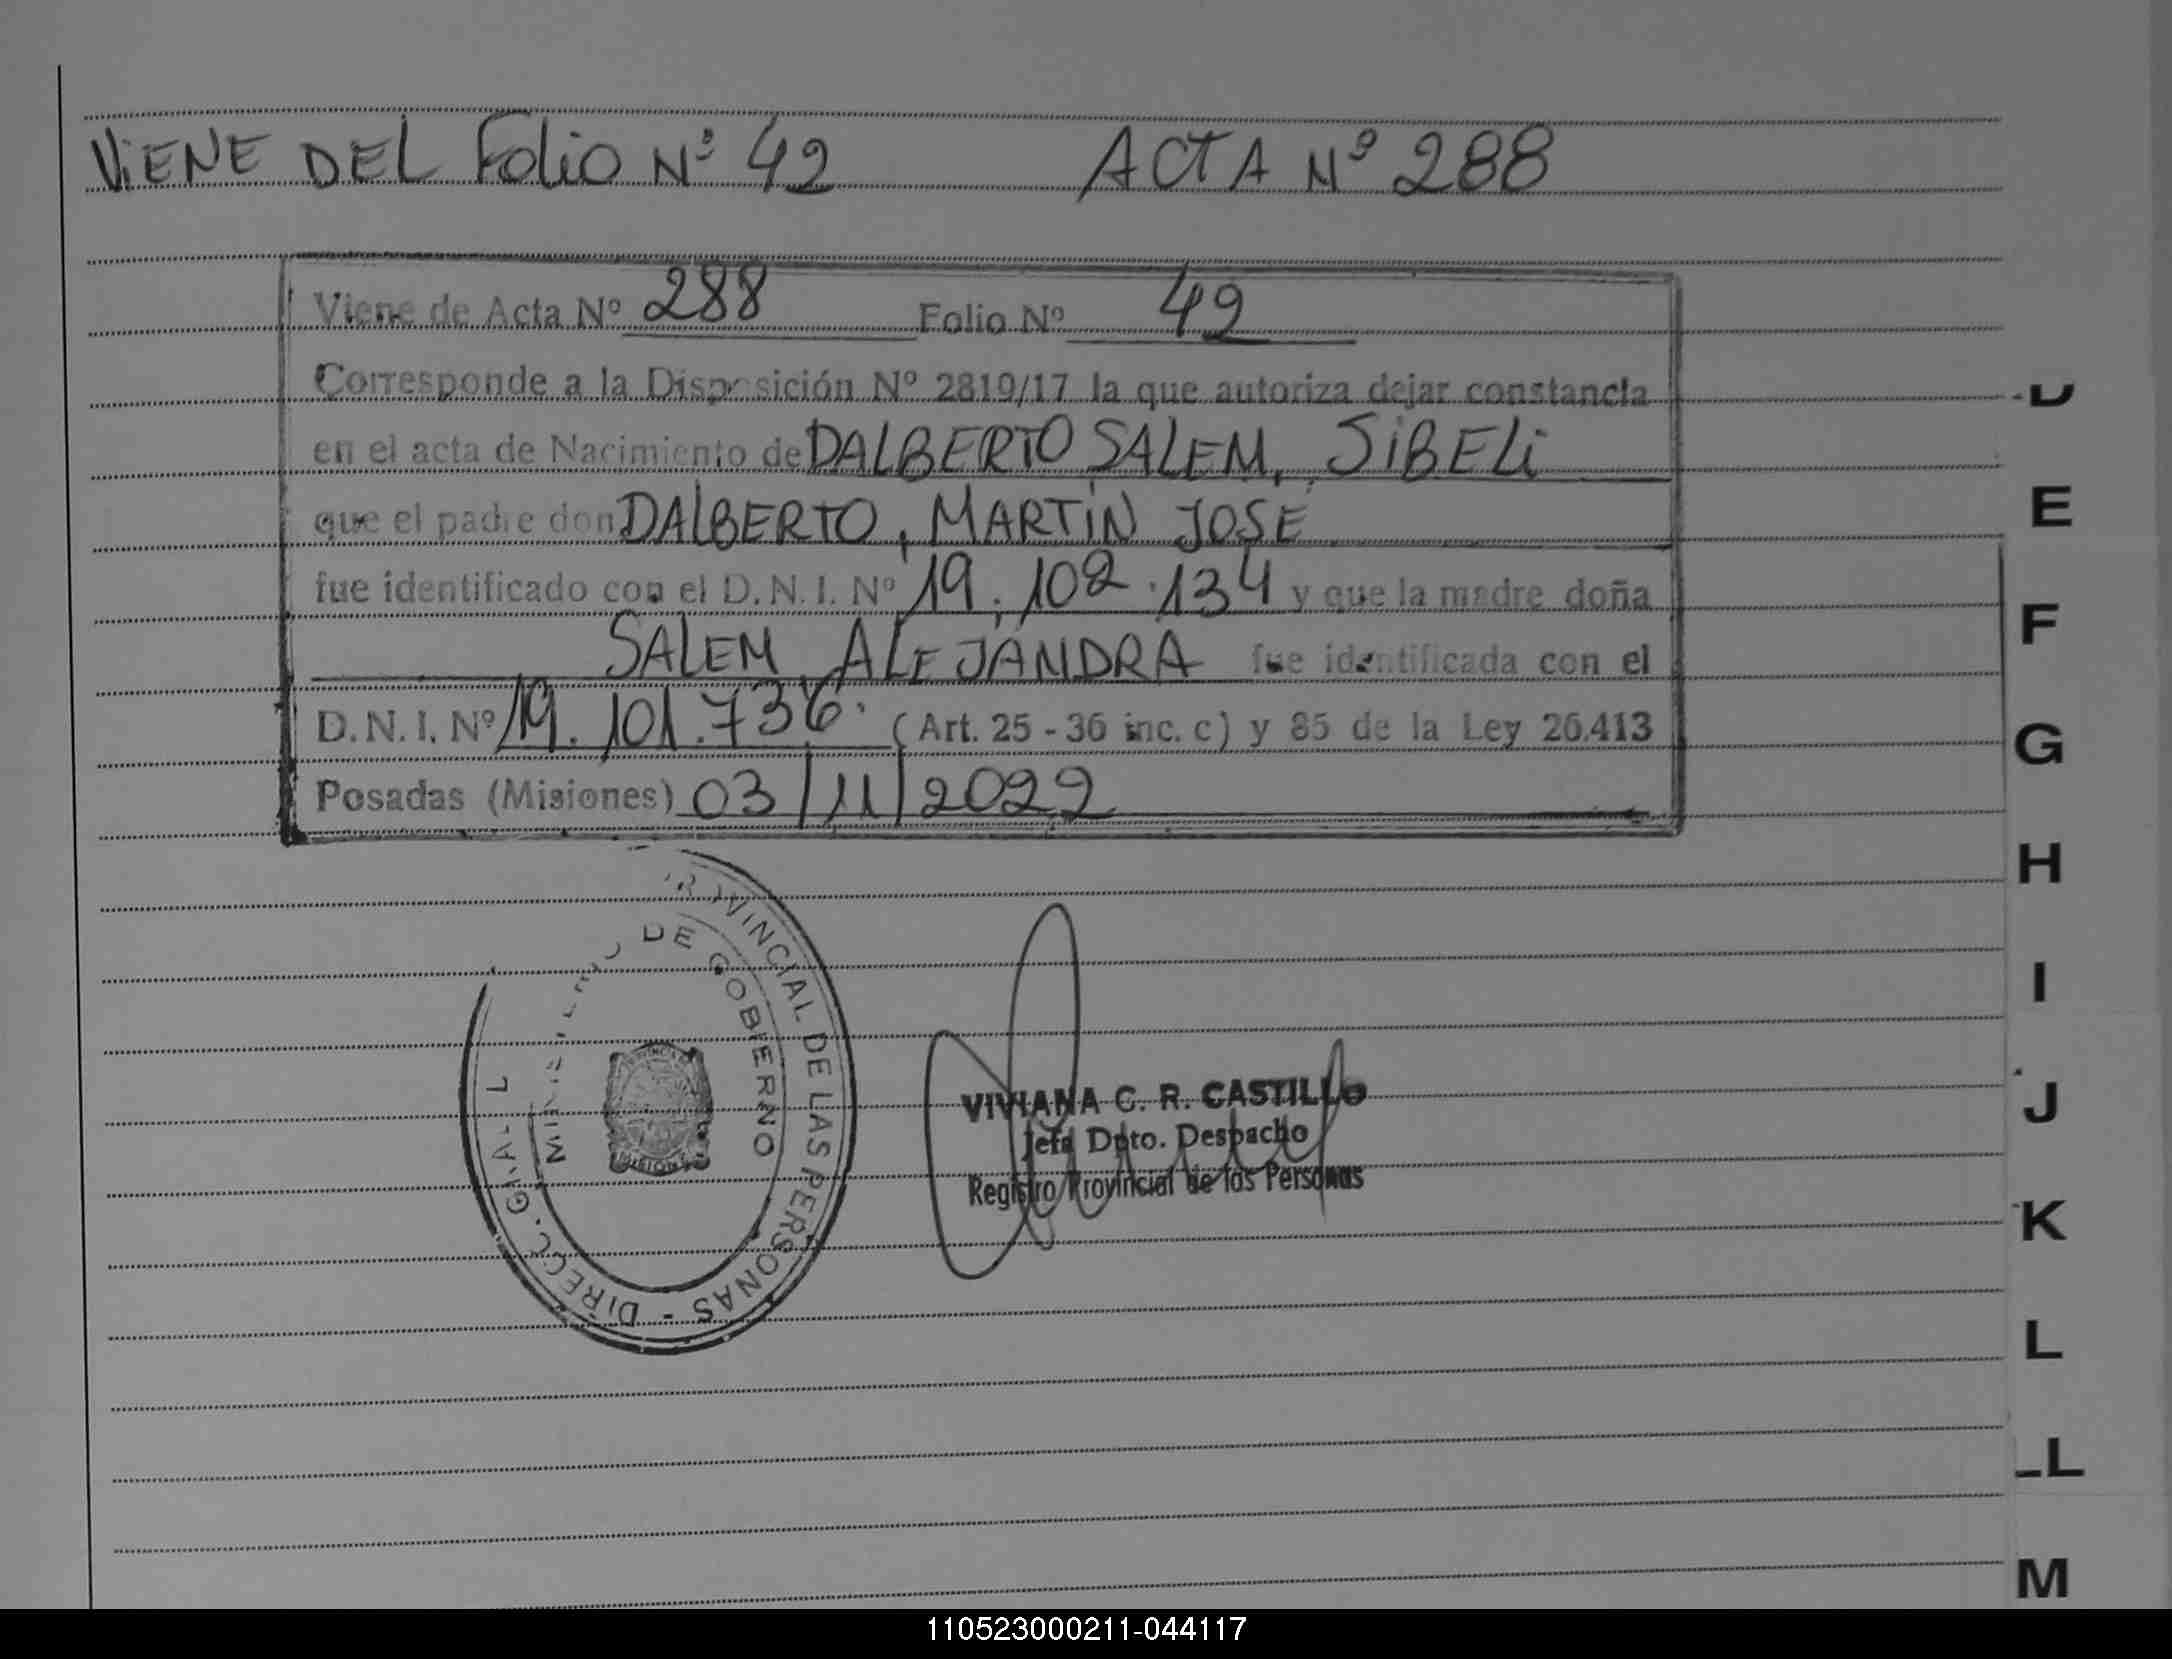 ViENE DEL Folio Nº 42 ACTA Nº 288
Viene de Acta Nº 288 Folio Nº 42
Corresponde a la Disposición Nº 2819/17 la que autoriza dejar constancia
en el acta de Nacimiento de DALBERTO SALEM, SiBELi
que el padre don DALBERTO, MARTíN JOSÉ
fue identificado con el D.N.I. Nº 19.102.134 y que la madre doña
SALEM, ALEJANDRA fue identificada con el
D.N.I. Nº 19.101.736. (Art. 25 - 36 inc. c) y 85 de la Ley 26.413
Posadas (Misiones) 03/11/2022
DIRECC. GRAL
PROVINCIAL DE LAS PERSONAS -
MINISTERIO DE GOBIERNO
PROVINCIA
MISIONES
VIVIANA C. R. CASTILLO
Jefa Dpto. Despacho
Registro Provincial de las Personas
D
E
F
G
H
I
J
K
L
LL
M
110523000211-044117